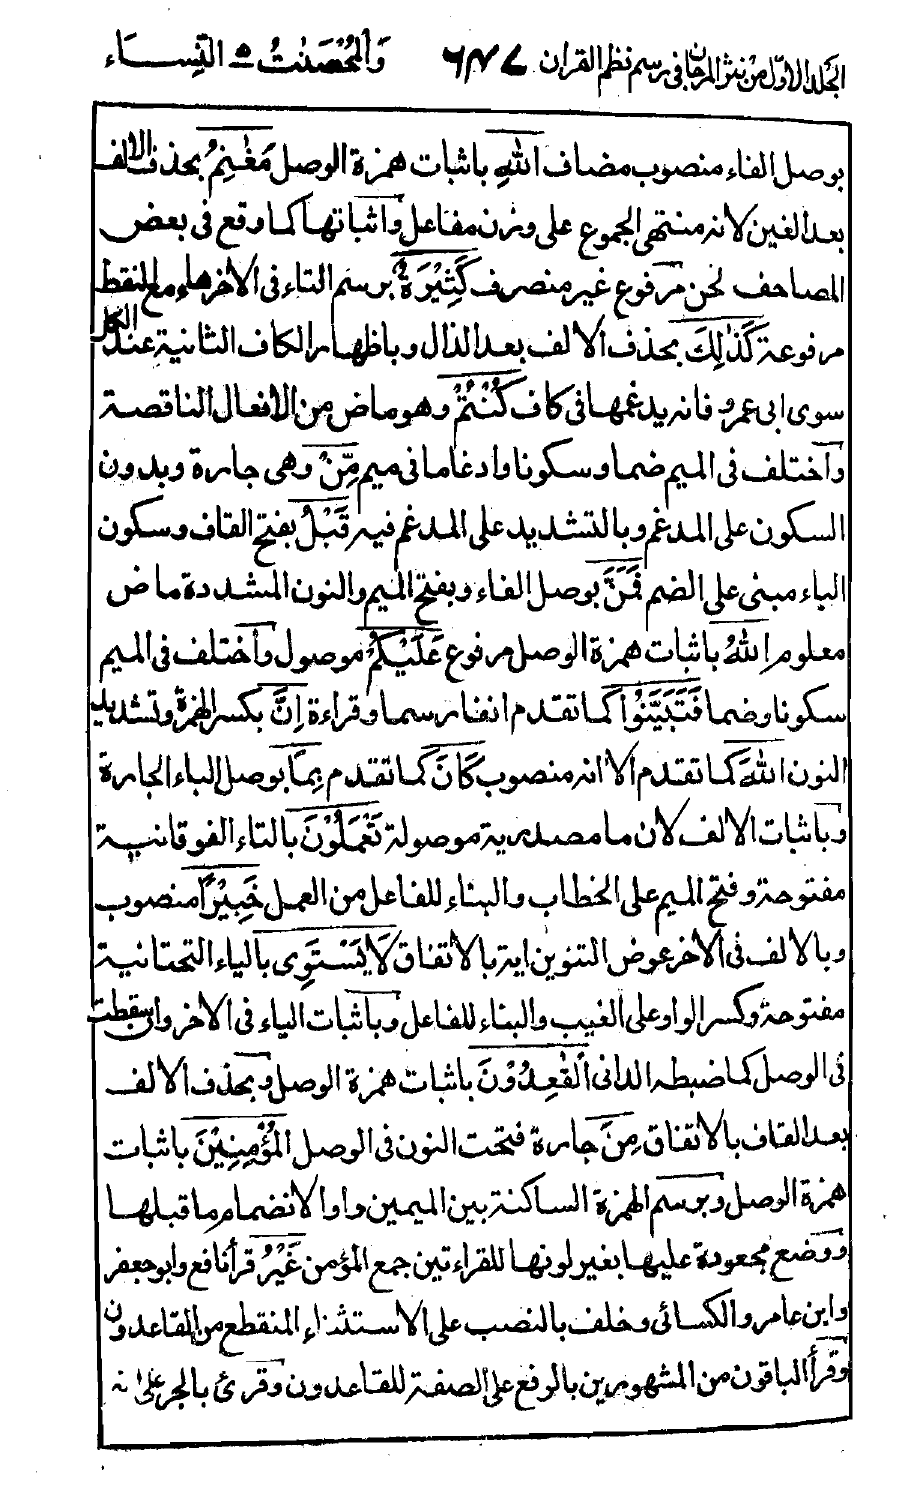 الجلد الاول من نثر المرجان فى رسم نظم القران ٦٨٧ والمحصنت ٥ النساء
بوصل الفاء منصوب مضاف اللّٰهِ باثبات همزة الوصل مَغٰنِمُ بحذف الالف
بعد الغين لانه منتهى الجموع على وزن مفاعل واثباتها كما وقع فى بعض
المصاحف لحن مرفوع غير منصرف كَثِيْرَةٌ برسم التاء فى الاخر هاء مع النقط
مرفوعة كَذٰلِكَ بحذف الالف بعد الذال وباظهار الكاف الثانية عند الكل
سوى ابى عمرو فانه يدغمها فى كاف كُنْتُمْ وهو ماض من الافعال الناقصة
واختلف فى الميم ضما وسكونا وادغاما فى ميم مِّنْ وهى جارة وبدون
السكون على المدغم وبالتشديد على المدغم فيه قَبْلُ بفتح القاف وسكون
الباء مبنى على الضم فَمَنَّ بوصل الفاء وبفتح الميم والنون المشددة ماض
معلوم اللّٰهُ باثبات همزة الوصل مرفوع عَلَيْكُمْ موصول واختلف فى الميم
سكونا وضما فَتَبَيَّنُوْا كما تقدم انفا رسما وقراءة اِنَّ بكسر الهمزة وتشديد
النون اللّٰهَ كما تقدم الا انه منصوب كَانَ كما تقدم بِمَا بوصل الباء الجارة
وباثبات الالف لان ما مصدرية موصولة تَعْمَلُوْنَ بالتاء الفوقانية
مفتوحة وفتح الميم على الخطاب والبناء للفاعل من العمل خَبِيْرًا منصوب
وبالالف فى الاخر عوض التنوين اية بالاتفاق لَا يَسْتَوِى بالياء التحتانية
مفتوحة وكسر الواو على الغيب والبناء للفاعل وباثبات الياء فى الاخر وان سقطت
فى الوصل كما ضبطه الدانى الْقٰعِدُوْنَ باثبات همزة الوصل وبحذف الالف
بعد القاف بالاتفاق مِنَ جارة فتحت النون فى الوصل الْمُؤْمِنِيْنَ باثبات
همزة الوصل وبرسم الهمزة الساكنة بين الميمين واوا لانضمام ما قبلها
ووضع مجعودة عليها بغير لونها للقراءتين جمع المؤمن غَيْرُ قرأ نافع وابو جعفر
وابن عامر والكسائى وخلف بالنصب على الاستثناء المنقطع من القاعدون
وقرأ الباقون من المشهورين بالرفع على الصفة للقاعدون وقرئ بالجر على انه